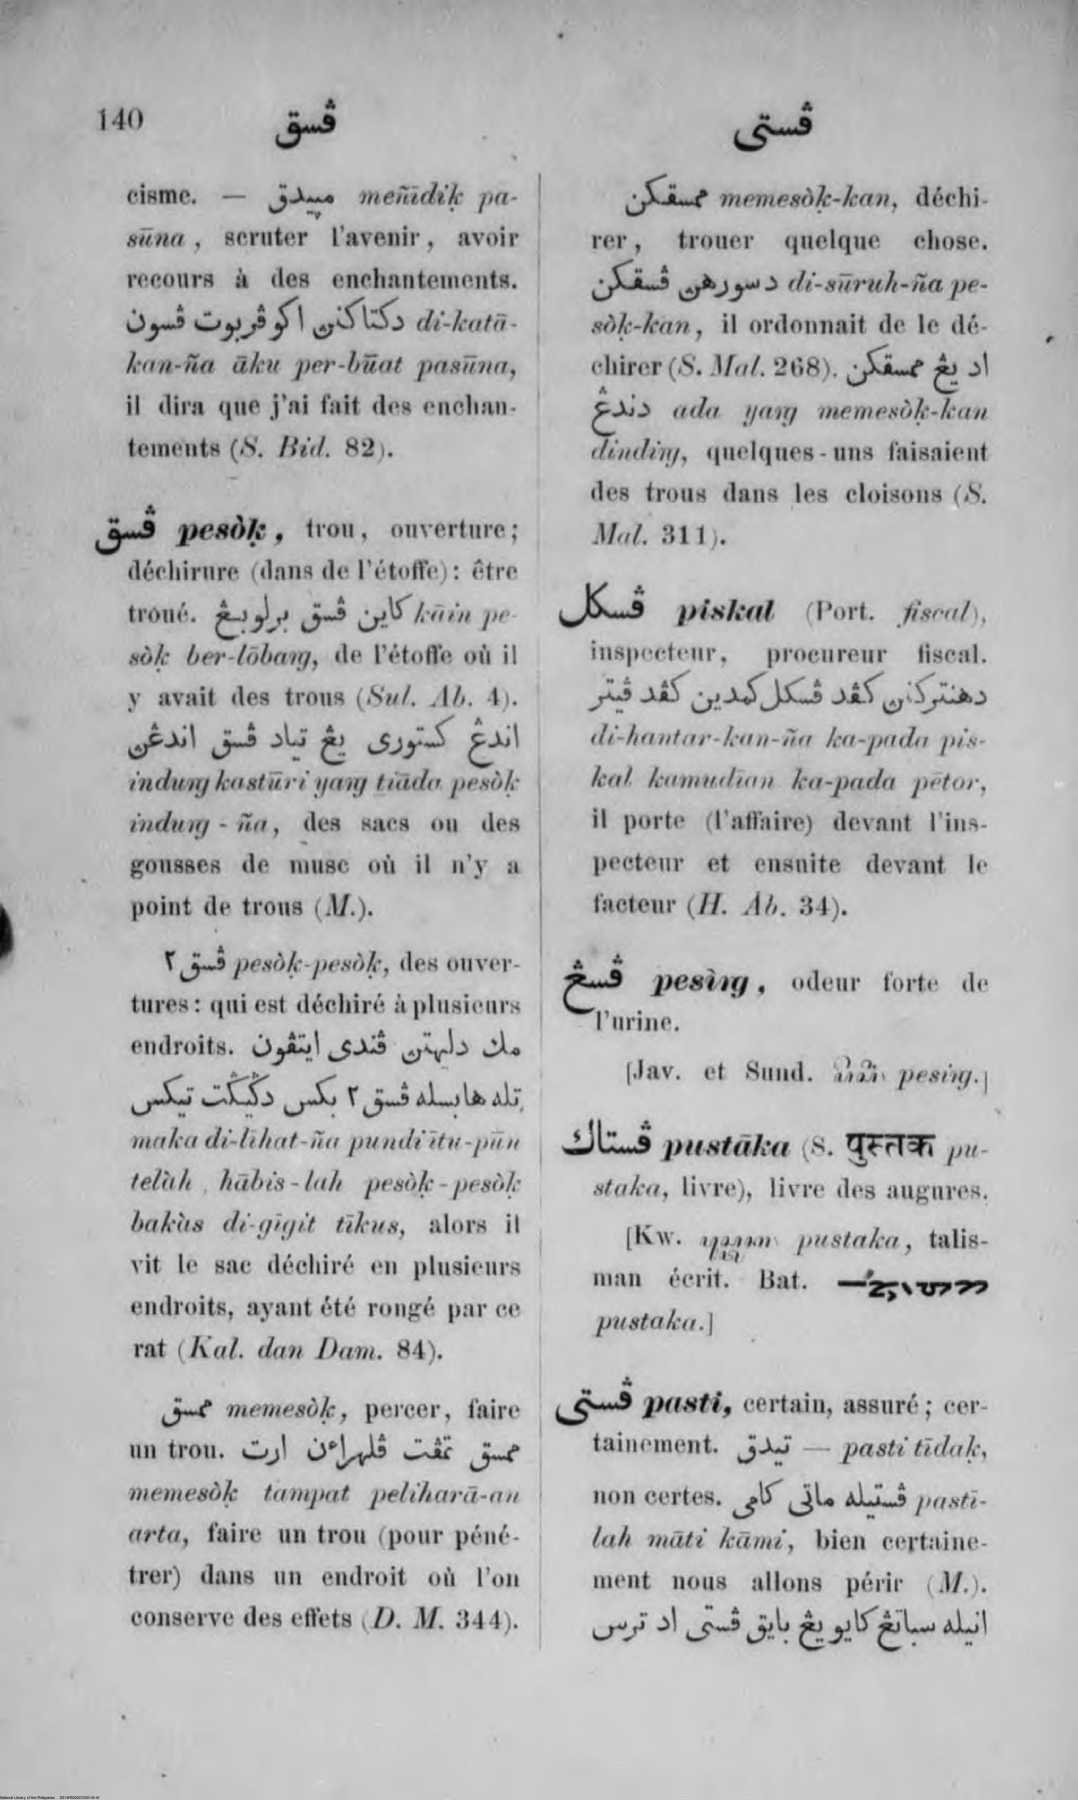 140
ڤسق
ڤستي
cisme. — ميبدق meñīdiḳ pa-
sūna, scruter l'avenir, avoir
recours à des enchantements.
دكتاكنن اكو ڤربوت ڤسون di-katā-
kan-ña āku per-būat pasūna,
il dira que j'ai fait des enchan-
tements (S. Bid. 82).
ڤسق pesòḳ, trou, ouverture;
déchirure (dans de l'étoffe): être
troué. كاين ڤسق برلوبڠ kāin pe-
sòḳ ber-lōbaŋ, de l'étoffe où il
y avait des trous (Sul. Ab. 4).
اندڠ كستوري يڠ تياد ڤسق اندڠن
induŋ kastūri yaŋ tiāda pesòḳ
induŋ-ña, des sacs ou des
gousses de musc où il n'y a
point de trous (M.).
ڤسق٢ pesòḳ-pesòḳ, des ouver-
tures: qui est déchiré à plusieurs
endroits. مك دليهتن ڤندي ايتڤون
تله هابسله ڤسق٢ بكس دڬيڬت تيكس
maka di-līhat-ña pundi ītu-pūn
telàh hābis-lah pesòḳ-pesòḳ
bakàs di-gīgit tīkus, alors il
vit le sac déchiré en plusieurs
endroits, ayant été rongé par ce
rat (Kal. dan Dam. 84).
ممسق memesòḳ, percer, faire
un trou. ممسق تمڤت ڤلهراءن ارت
memesòḳ tampat pelīharā-an
arta, faire un trou (pour péné-
trer) dans un endroit où l'on
conserve des effets (D. M. 344).
ممسقكن memesòḳ-kan, déchi-
rer, trouer quelque chose.
دسورهن ڤسقكن di-sūruh-ña pe-
sòḳ-kan, il ordonnait de le dé-
chirer (S. Mal. 268). اد يڠ ممسقكن
دندڠ ada yaŋ memesòḳ-kan
dindiŋ, quelques-uns faisaient
des trous dans les cloisons (S.
Mal. 311).
ڤسكل piskal (Port. fiscal),
inspecteur, procureur fiscal.
دهنتركنن كڤد ڤسكل كمدين كڤد ڤيتر
di-hantar-kan-ña ka-pada pis-
kal kamudīan ka-pada pētor,
il porte (l'affaire) devant l'ins-
pecteur et ensuite devant le
facteur (H. Ab. 34).
ڤسڠ pesìŋ, odeur forte de
l'urine.
[Jav. et Sund. pesiŋ.]
ڤستاك pustāka (S. पुस्तक pu-
staka, livre), livre des augures.
[Kw. pustaka, talis-
man écrit. Bat.
pustaka.]
ڤستي pasti, certain, assuré; cer-
tainement. تيدق — pasti tīdaḳ,
non certes. ڤستيله ماتي كامي pasti-
lah māti kāmi, bien certaine-
ment nous allons périr (M.).
انيله سباتڠ كايو يڠ بايق ڤستي اد ترس